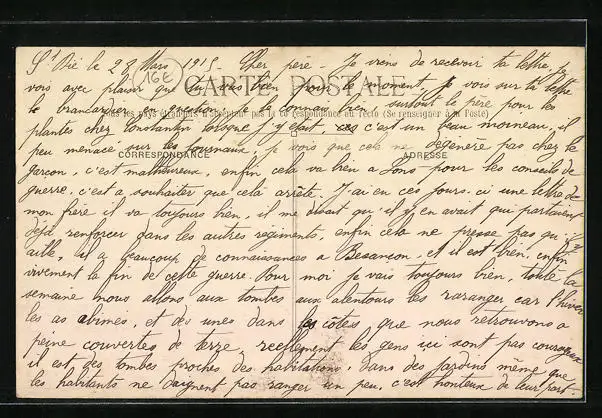 St Dié le 28 Mars 1915. Cher père. Je viens de recevoir ta lettre, je
16E
CARTE POSTALE
vois avec plaisir que tu vas bien pour le moment. Je vois sur ta lettre
le brancardier en question, je le connais bien, surtout le père pour les
Tous les pays étrangers n'acceptent pas la correspondance au recto (Se renseigner à la Poste)
plantes chez Constantin j'y étais, c'est un beau moineau, il
peu menacé sur les journaux, je vois que cela ne dégénère pas chez le
CORRESPONDANCE
ADRESSE
garçon, c'est malheureux, enfin cela va bien a Lons pour les conseils de
guerre, c'est a souhaiter que cela arrête. J'ai en ces jours ci une lettre de
mon frère il va toujours bien, il me disait qu'il y en avait qui partaient
déjà renforcer dans les autres régiments, enfin cela ne presse pas qu'il y
aille, il a beaucoup de connaissances a Besançon, et il est bien, enfin
vivement la fin de cette guerre. Pour moi je vais toujours bien, toute la
semaine nous allons aux tombes aux alentours les raranger car l'hiver
les as abimés, et des unes dans les côtes que nous retrouvons a
peine couvertes de terre, reellement les gens ici sont pas courageux
il est des tombes proches des habitations, dans des jardins même que
les habitants ne daignent pas ranger un peu, c'est honteux de leur part.